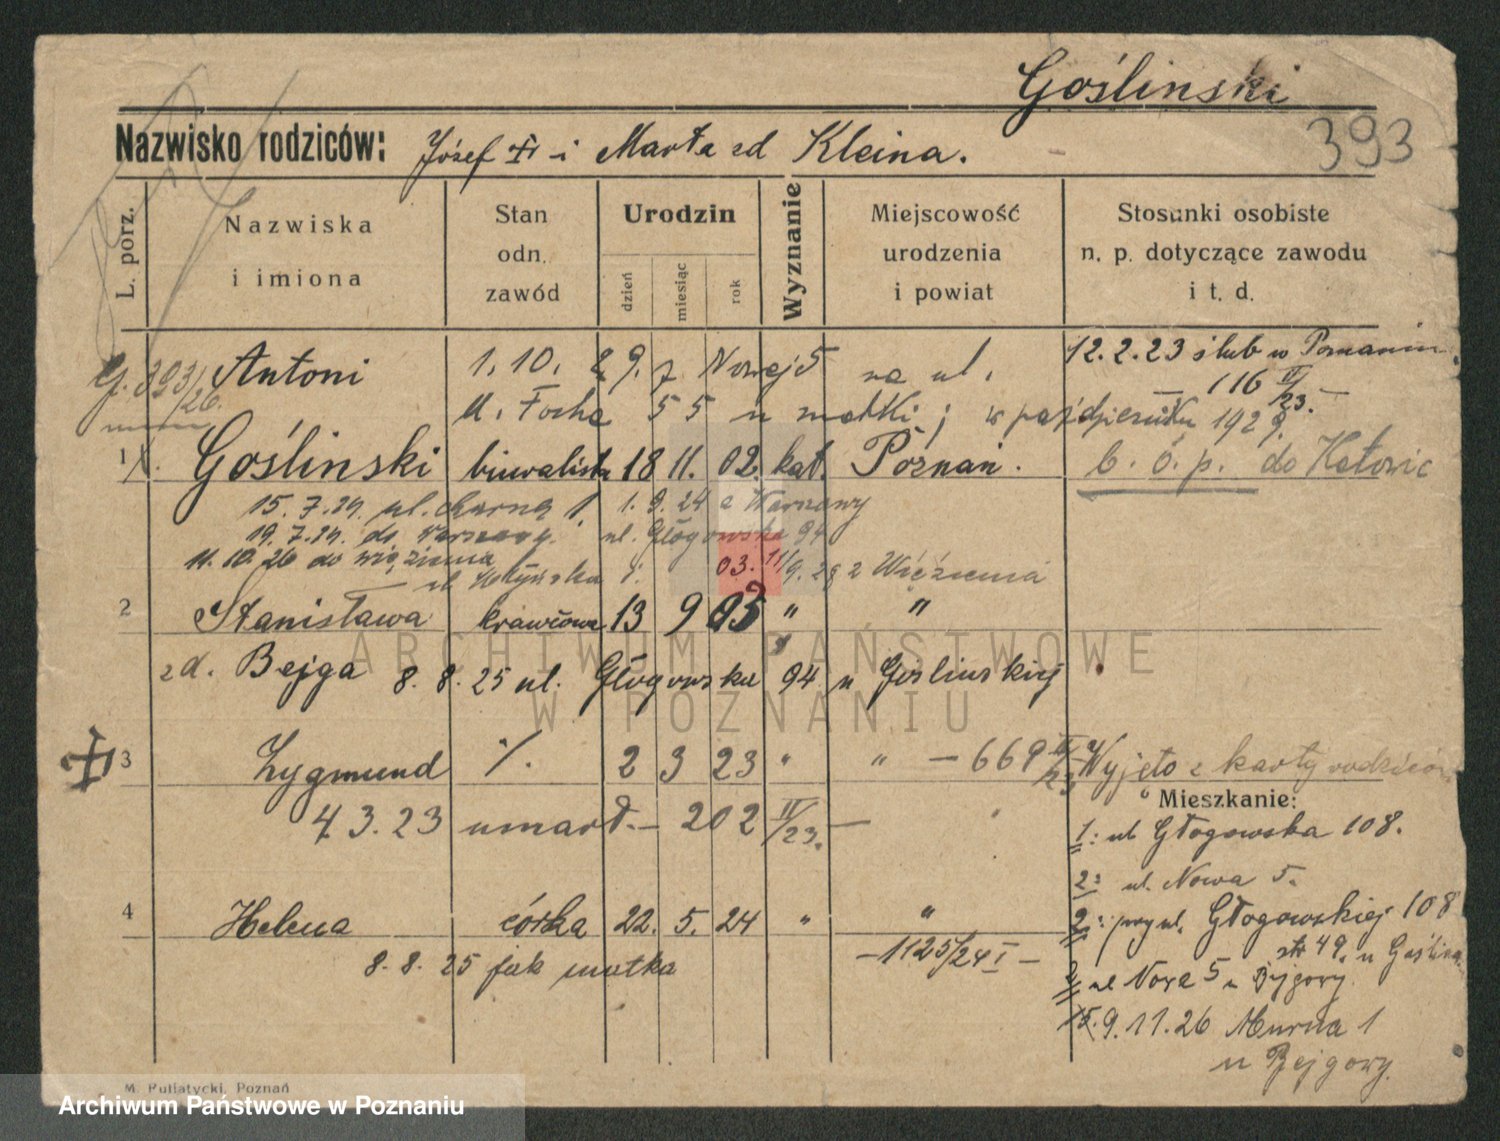 Goślinski
Nazwisko rodziców: Józef i Marta zd Kleina.
393
L. porz.
Nazwiska i imiona
Stan odn. zawód
Urodzin
dzień
miesiąc
rok
Wyznanie
Miejscowość urodzenia i powiat
Stosunki osobiste n. p. dotyczące zawodu i t. d.
12.2.23 ślub w Poznaniu.
116 II/23.
G. 393/26.
Antoni 1.10. 29. z Nowej 5 na ul.
M. Focha 55 u matki; w październiku 1929.
1 Goślinski 18 11. 02. kat. Poznań. b. o. p. do Katowic
15.7.24. ul. 1. 1. 9. 24 z Warszawy
19.7.24. do Warszawy. ul. Głogowska 94
11.10.26 do więzienia
03. 11/9. 28 z Więzienia
2 Stanisława krawcowa 13 9 03 " "
zd. Bejga 8. 8. 25 ul. Głogowska 94 u Goślinskiej
3 Zygmund ./. 2 3 23 " " — 669 II/23 Wyjęto z karty rodziców
4.3.23 umarł. — 202 II/23. —
Mieszkanie:
1: ul Głogowska 108.
2: ul. Nowa 5.
4 Helena córka 22. 5. 24 " "
2: przy ul. Głogowskiej 108
8. 8. 25 jak matka
— 1125/24 I —
49. u
ul 5 u
9.11.26 Murna 1
u Bejgory.
M. Putiatycki, Poznań
ARCHIWUM PAŃSTWOWE
W POZNANIU
Archiwum Państwowe w Poznaniu